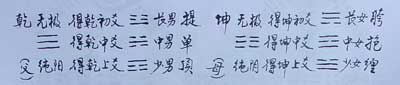 乾 无极 得乾初爻 长男 提 坤 无极 得坤初爻 长女
得乾中爻 中男 单 得坤中爻 中女
父 得乾上爻 少男 顶 母 纯阴 得坤上爻 少女 缠